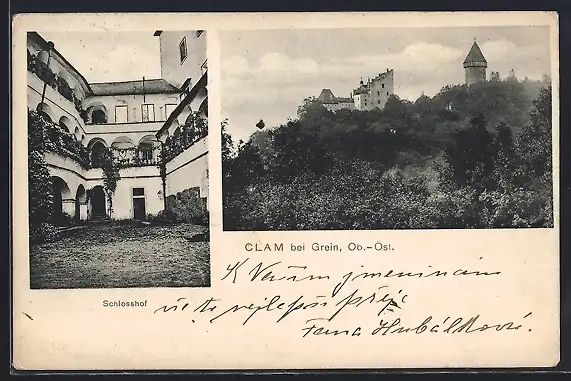 CLAM bei Grein, Ob.-Öst.
Schlosshof
K Vašim jmeninám
vše nejlepší přeje
Fama Hubálkovi.